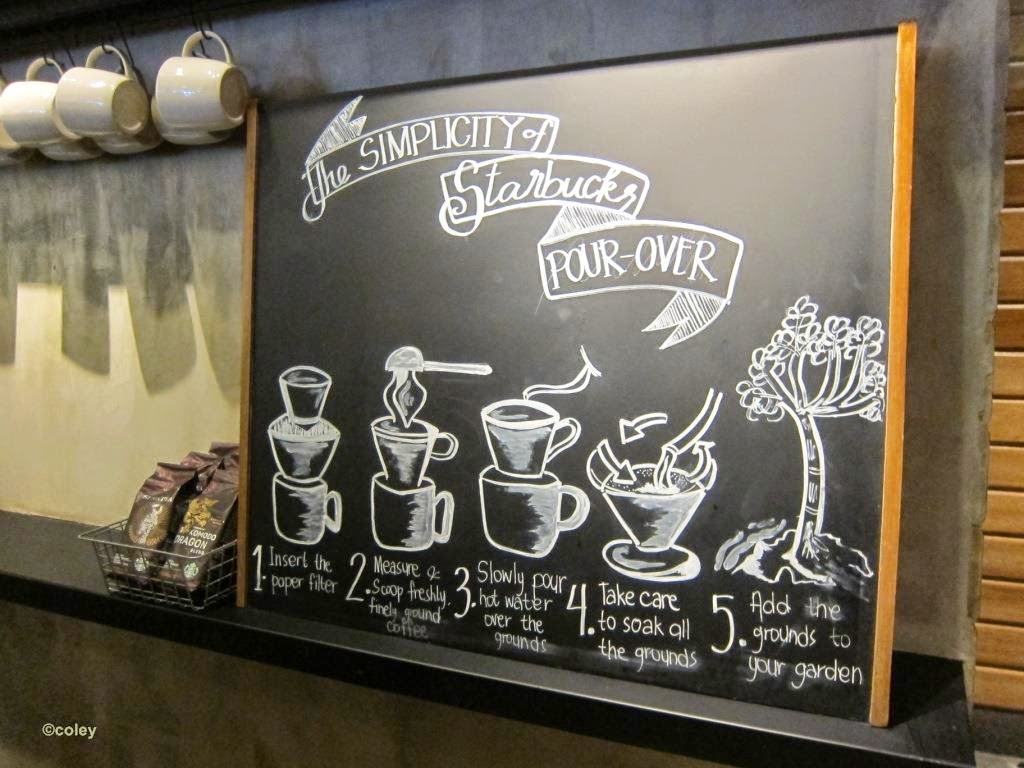 The SIMPLICITY of
Starbucks
POUR-OVER
1. Insert the
paper filter
2. Measure &
Scoop freshly,
finely ground
coffee
3. Slowly pour
hot water
over the
grounds
4. Take care
to soak all
the grounds
5. Add the
grounds to
your garden
KOMODO
DRAGON
BLEND
©coley